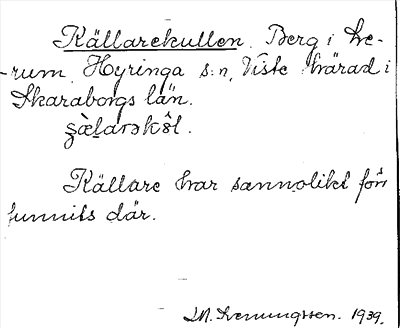 Källarekullen. Berg i Le-
-rum, Hyringa s:n, Viste härad i
Skaraborgs län.
Källare har sannolikt förr
funnits där.
1939.